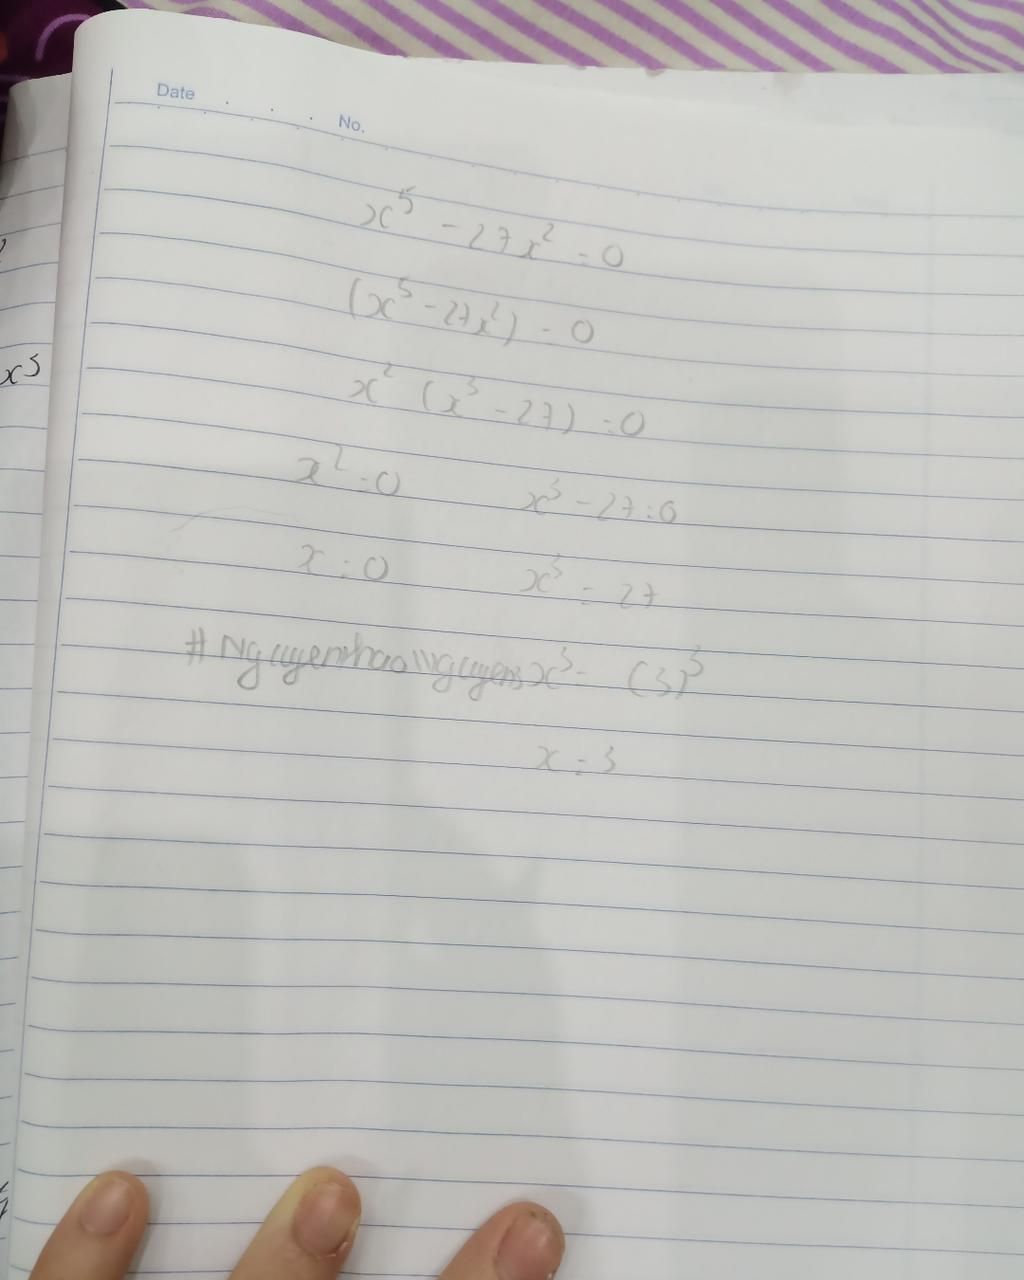 Date . . . No.
x⁵ - 27x² = 0
(x⁵ - 27x²) = 0
x² (x³ - 27) = 0
x² = 0 x³ - 27 = 0
x = 0 x³ = 27
x³
# Nguyenthao Nguyens x³ = (3)³
x = 3